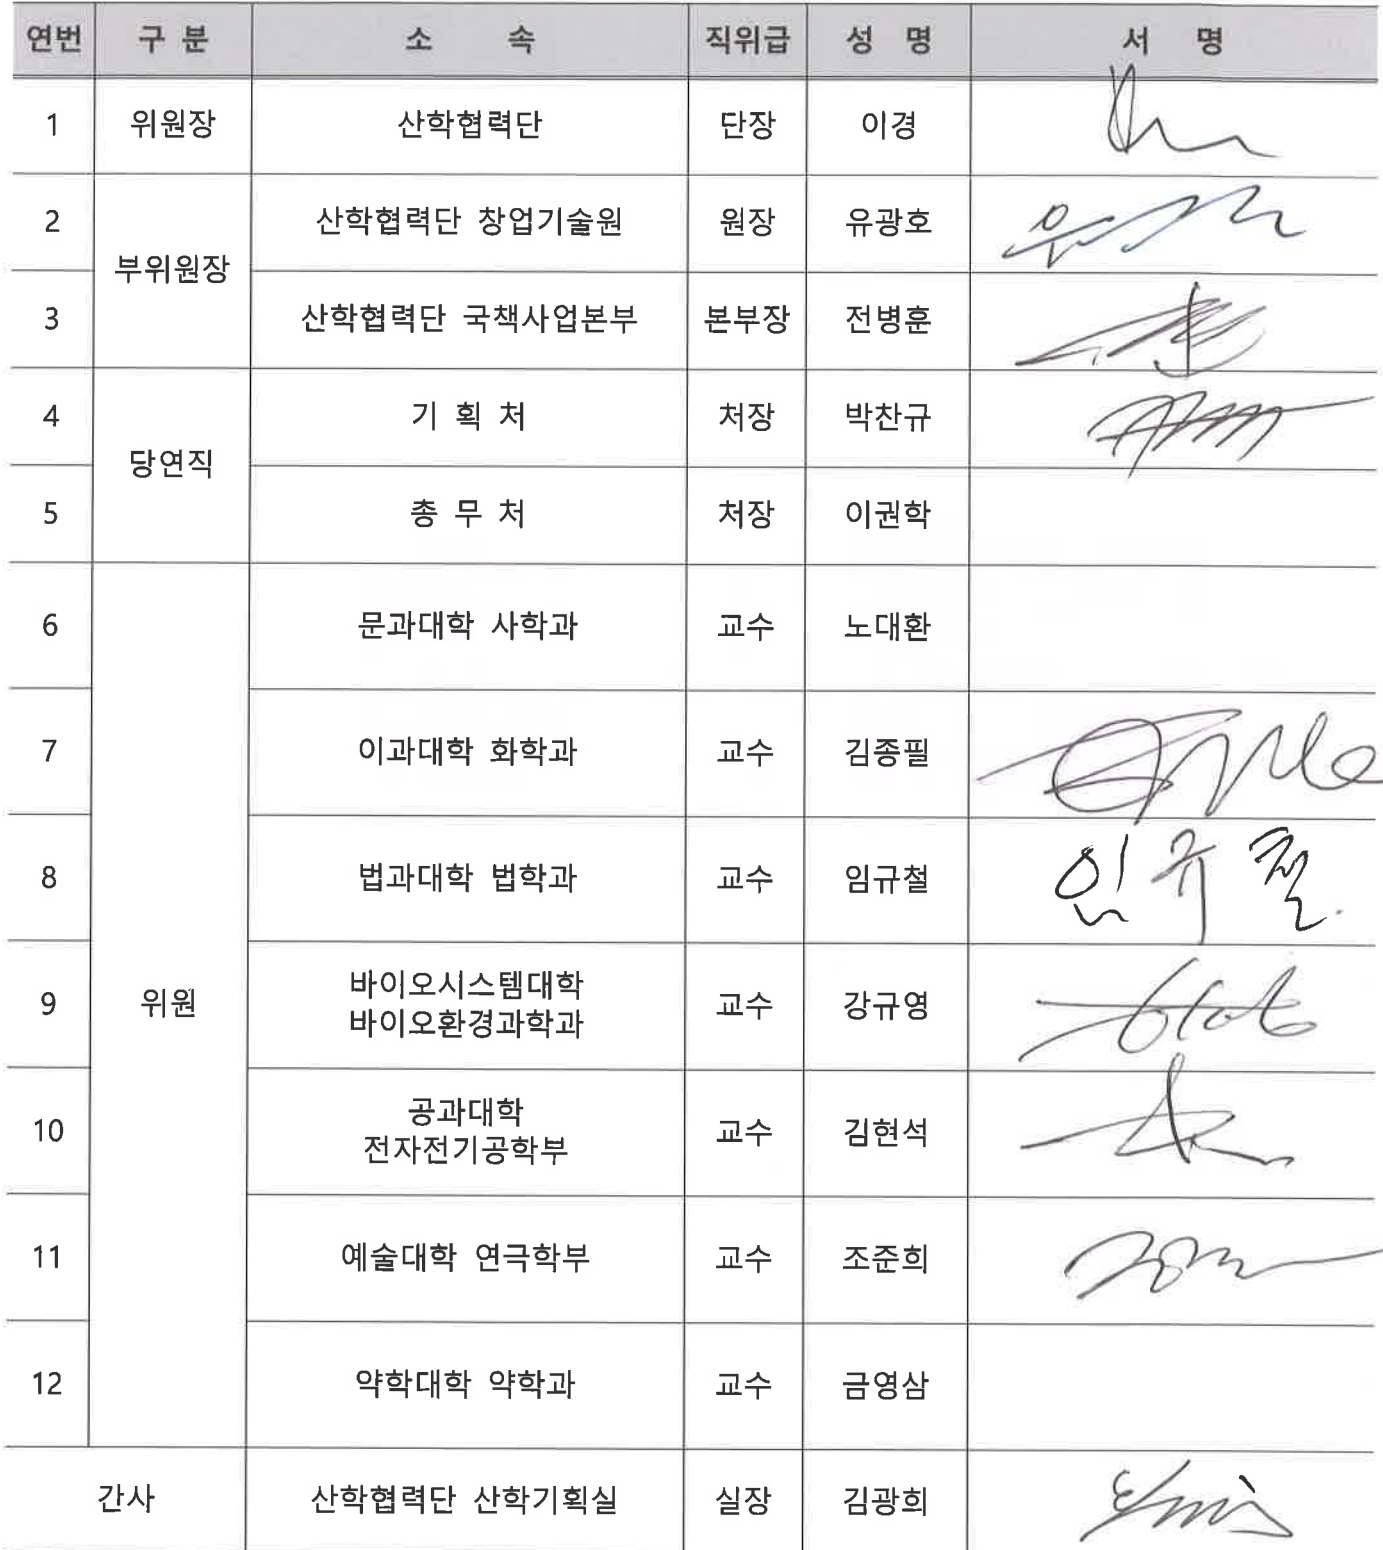 연번 구 분 소 속 직위급 성 명 서 명
1 위원장 산학협력단 단장 이경
2 부위원장 산학협력단 창업기술원 원장 유광호
3 산학협력단 국책사업본부 본부장 전병훈
4 당연직 기 획 처 처장 박찬규
5 총 무 처 처장 이권학
6 위원 문과대학 사학과 교수 노대환
7 이과대학 화학과 교수 김종필
8 법과대학 법학과 교수 임규철 임규철
9 바이오시스템대학
바이오환경과학과 교수 강규영
10 공과대학
전자전기공학부 교수 김현석
11 예술대학 연극학부 교수 조준희
12 약학대학 약학과 교수 금영삼
간사 산학협력단 산학기획실 실장 김광희